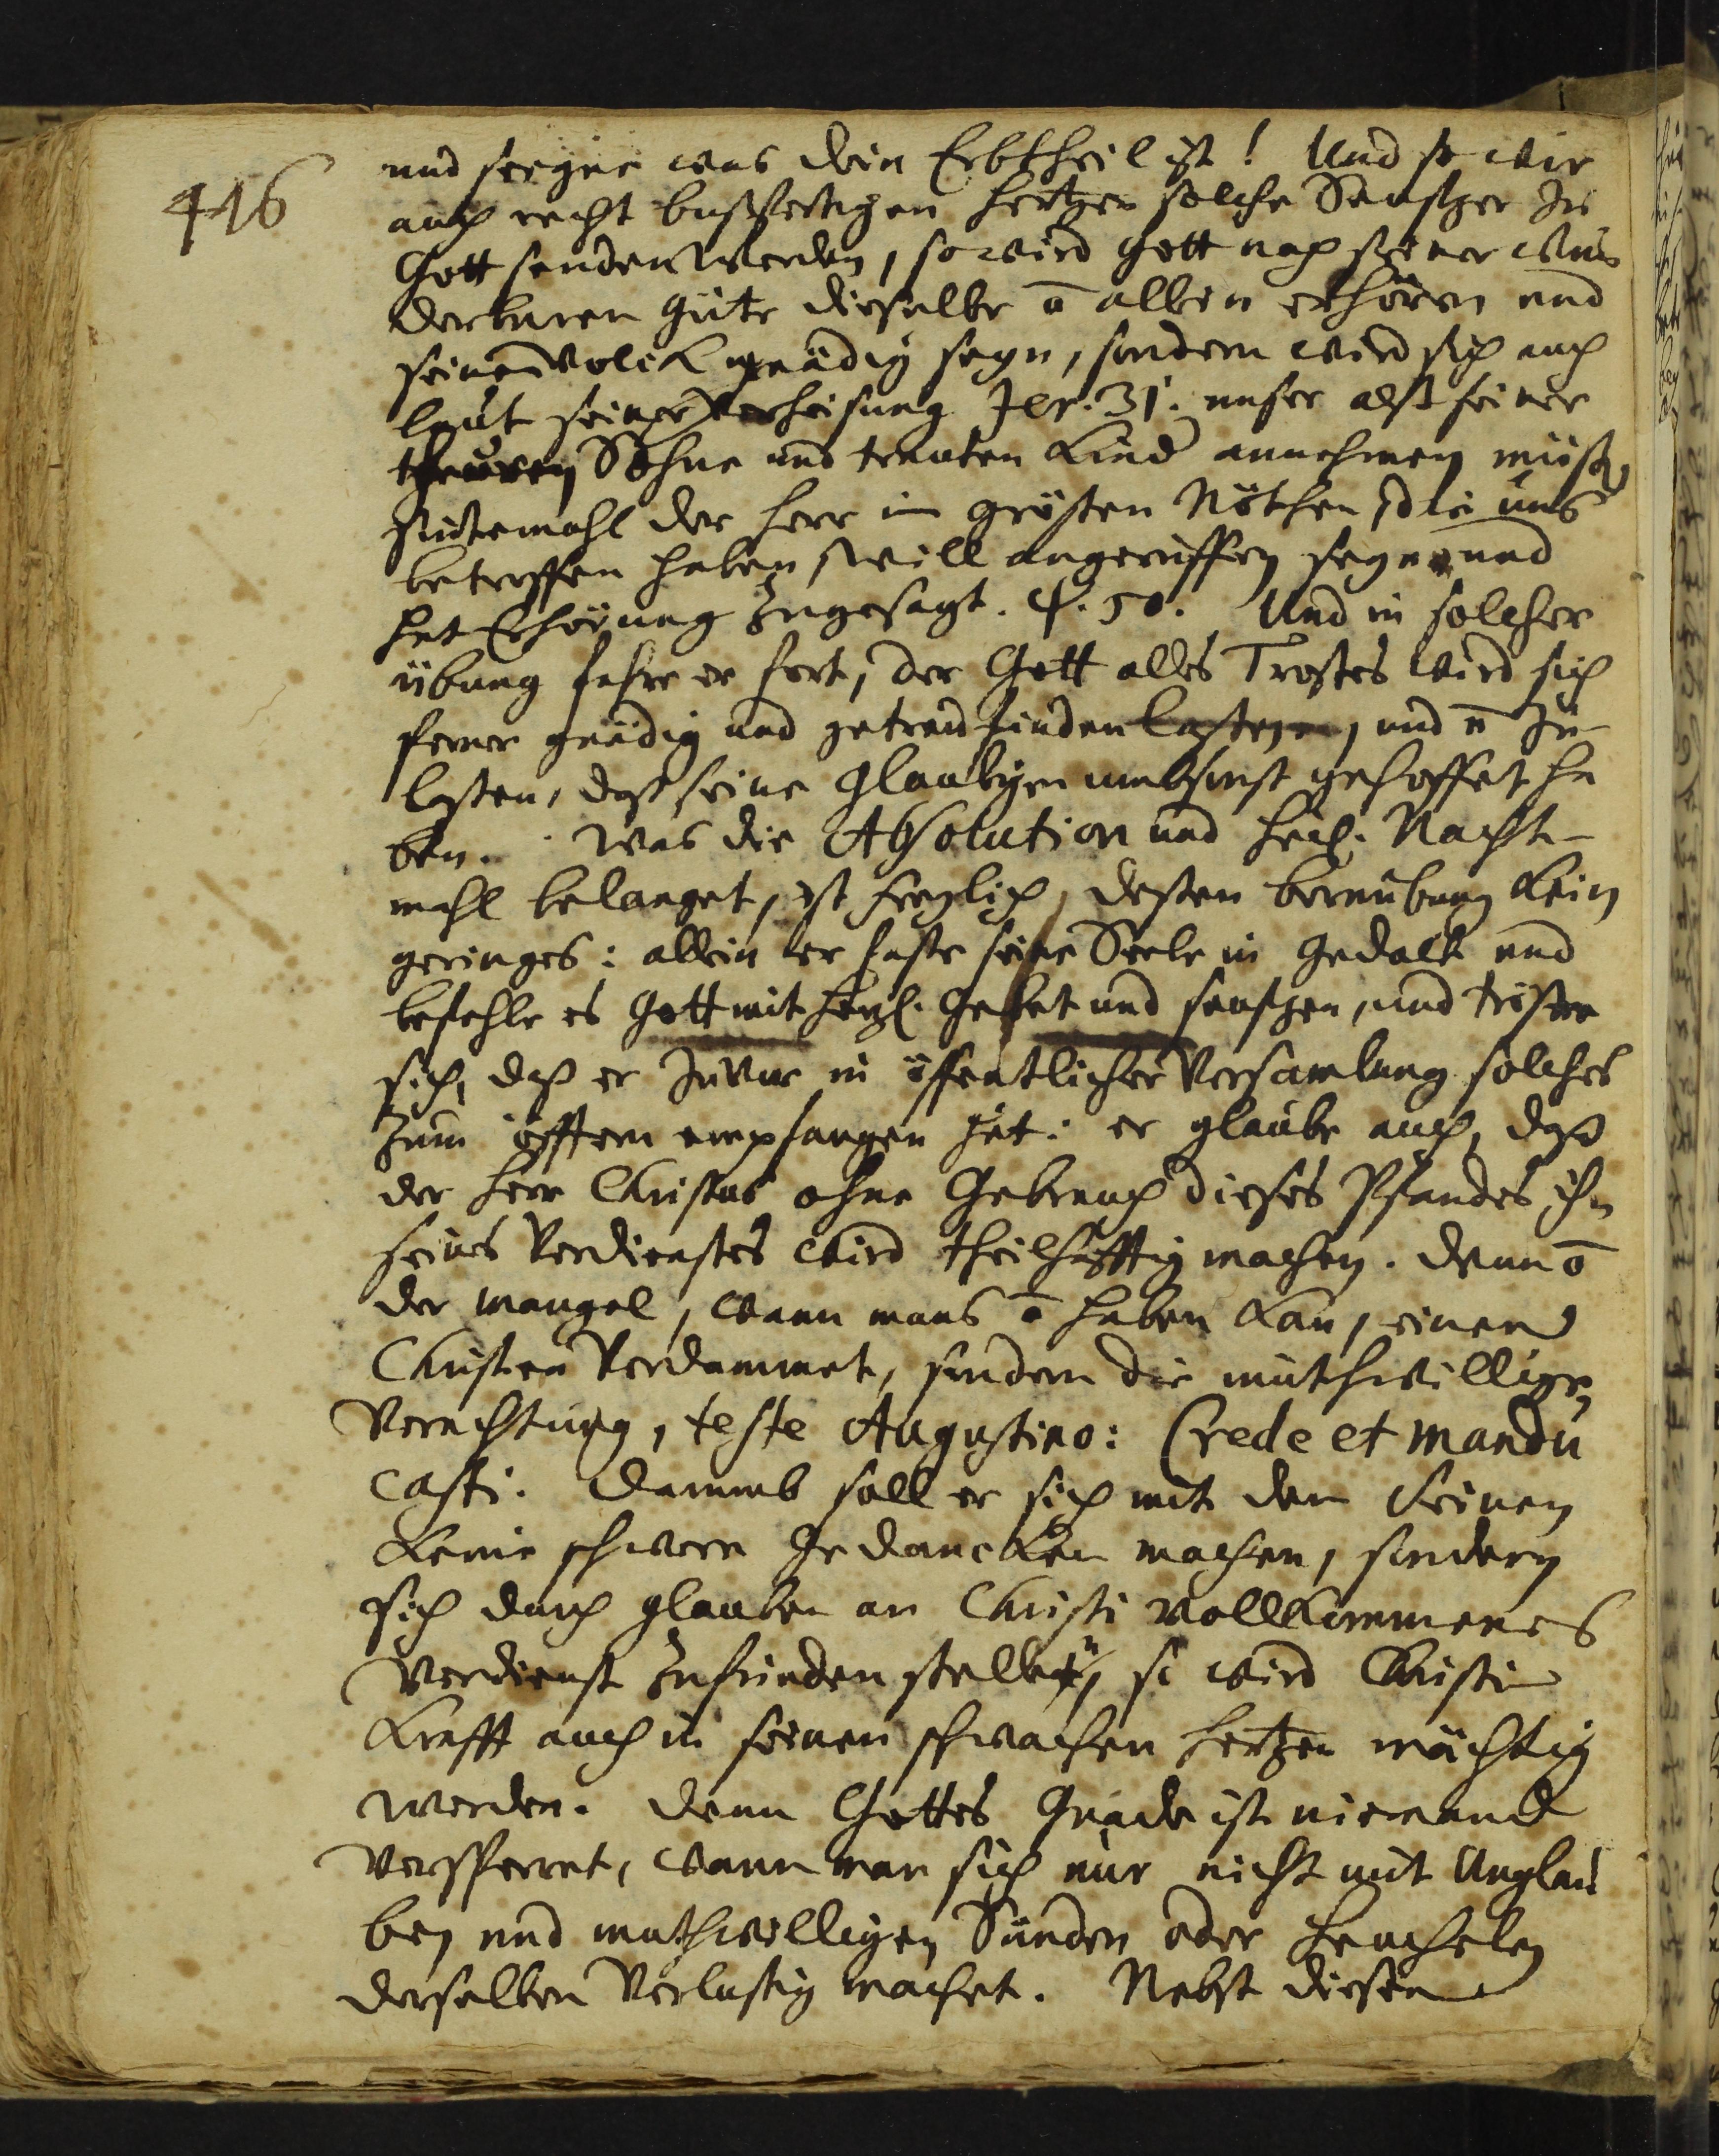 416
und seegne was dein Erbtheil ist! Und so wir
auß recht bußfertigen Hertzen solche Seuftzer zu
Gott senden werden, so wird Gott nach seiner wun
derbaren Güte dieselbe õ allein erhören und
seinem Volck gnädig seyn, sondern wird sich auch
laut seiner Verheisung Jer. 31. unser alß seiner
theuren Söhne und trauten Kind annehmen müß
sintemahl der Herr in grösten Nöthen, die uns
betroffen haben, will angeruffen seyn und
hat Erhörung zugesagt. ψ. 50. Und in solcher
übung fahre er fort, der Gott alles Trostes wird sich
ferner gnädig und getreu finden lassen, und õ zu-
lassen, daß seine Glaubigen umbsonst gehoffet ha
ben. Was die Absolution und heil. Nacht-
mahl belanget, ist freylich, dessen beraubung kein
geringes: allein er fasse seine Seele in Gedult und
befehle es Gott mit hertzl. Gebet und seufzen, und tröste
sich, daß er zuvor in öffentlicher Versamlung solches
zum öfftern empfangen hat: er glaube auch, daß
der Herr Christus ohne Gebrauch dieses Pfandes ihn
seines Verdienstes wird theilhafftig machen. Denn õ
der mangel, wann mans õ haben kan, einen
Christen Verdammet, sondern die muthwillige
Verachtung, teste Augustino: Crede et mandu
casti. Darumb soll er sich mit den Seinen
keine schwere Gedancken machen, sondern
sich durch glauben an Christi vollkommenes
Verdienst zufrieden stellen, so wird Christi
Krafft auch in seinen schwachen Hertzen mächtig
werden. Denn Gottes Gnade ist niemand
Versperret, wann man sich nur nicht mit Unglau
ben und muthwilligen Sünden oder heucheley
derselben Verlustig machet. Nebst diesen